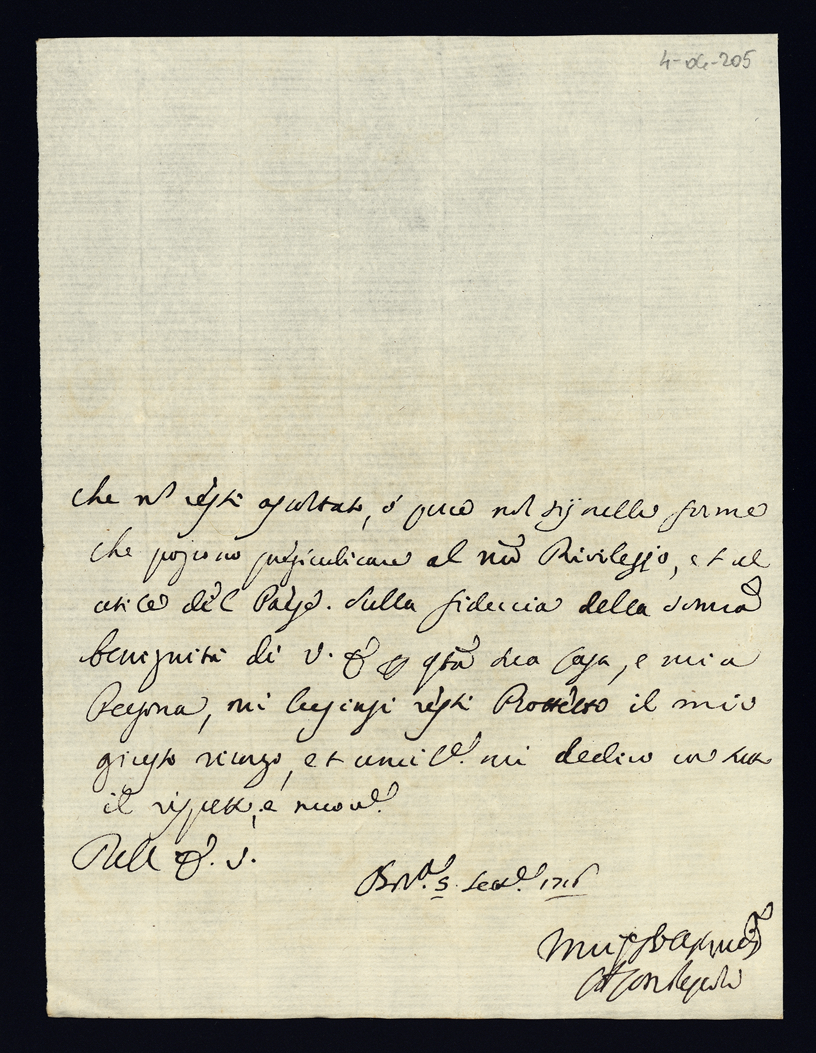 4-06-205
che nō resti ascoltato, ó pure nō sij nelle forme
che possono pregiudicare al nrō Privileggio, et al
utile del Paese. Sulla fiducia della somma
benignità di V. E. qstā sua Casa, e mia
Persona, mi lusingi resti Prottetto il mio
giusto ricorso, et umile. mi dedico con tutto
il rispetto, e
Dell E. V.
5. 1716